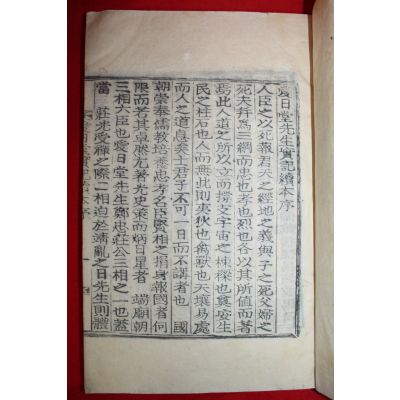 愛日堂先生實記續本序
人臣之以死報君天之經地之義與子之死父婦之
死夫幷爲三綱而忠也孝也烈也各以其所値而著
焉此人道之所以立而撐文宇宙之棟樑也奠安生
民之柱石也人而無此則夷狄也禽獸也天壤易處
而人之道息矣士君子不可一日而不講者也 國
朝崇奉儒教培養忠孝名臣賢相之捐身報國者何
限而若其卓勝尤著光史策而炳日星者 端廟朝
三相六臣也愛日堂先生鄭忠莊公三相之一也蓋
當 莊光受禪之際二相迫於靖亂之日先生則體